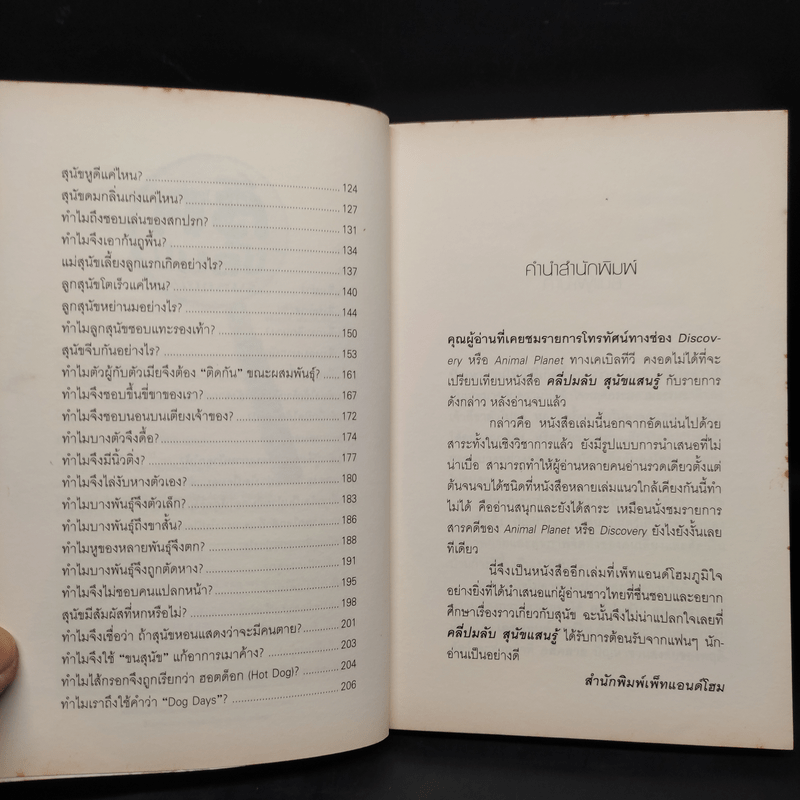 สุนัขหูดีแค่ไหน? 124
สุนัขดมกลิ่นเก่งแค่ไหน? 127
ทำไมถึงชอบเล่นของสกปรก? 131
ทำไมจึงเอาก้นถูพื้น? 134
แม่สุนัขเลี้ยงลูกแรกเกิดอย่างไร? 137
ลูกสุนัขโตเร็วแค่ไหน? 140
ลูกสุนัขหย่านมอย่างไร? 144
ทำไมลูกสุนัขชอบแทะรองเท้า? 150
สุนัขจีบกันอย่างไร? 153
ทำไมตัวผู้กับตัวเมียจึงต้อง “ติดกัน” ขณะผสมพันธุ์? 161
ทำไมจึงชอบขึ้นขี่ขาของเรา? 167
ทำไมจึงชอบนอนบนเตียงเจ้าของ? 172
ทำไมบางตัวจึงดื้อ? 174
ทำไมจึงมีนิ้วติ่ง? 177
ทำไมจึงไล่งับหางตัวเอง? 180
ทำไมบางพันธุ์จึงตัวเล็ก? 183
ทำไมบางพันธุ์ถึงขาสั้น? 186
ทำไมหูของหลายพันธุ์จึงตก? 188
ทำไมบางพันธุ์จึงถูกตัดหาง? 191
ทำไมจึงไม่ชอบคนแปลกหน้า? 195
สุนัขมีสัมผัสที่หกหรือไม่? 198
ทำไมจึงเชื่อว่า ถ้าสุนัขหอนแสดงว่าจะมีคนตาย? 201
ทำไมจึงใช้ “ขนสุนัข” แก้อาการเมาค้าง? 203
ทำไมไส้กรอกจึงถูกเรียกว่า ฮอตด็อก (Hot Dog)? 204
ทำไมเราถึงใช้คำว่า “Dog Days”? 206
คำนำสำนักพิมพ์
คุณผู้อ่านที่เคยชมรายการโทรทัศน์ทางช่อง Discov-
ery หรือ Animal Planet ทางเคเบิลทีวี คงอดไม่ได้ที่จะ
เปรียบเทียบหนังสือ คลี่ปมลับ สุนัขแสนรู้ กับรายการ
ดังกล่าว หลังอ่านจบแล้ว
กล่าวคือ หนังสือเล่มนี้นอกจากอัดแน่นไปด้วย
สาระทั้งในเชิงวิชาการแล้ว ยังมีรูปแบบการนำเสนอที่ไม่
น่าเบื่อ สามารถทำให้ผู้อ่านหลายคนอ่านรวดเดียวตั้งแต่
ต้นจนจบได้ชนิดที่หนังสือหลายเล่มแนวใกล้เคียงกันนี้ทำ
ไม่ได้ คืออ่านสนุกและยังได้สาระ เหมือนนั่งชมรายการ
สารคดีของ Animal Planet หรือ Discovery ยังไงยังงั้นเลย
ทีเดียว
นี่จึงเป็นหนังสืออีกเล่มที่เพ็ทแอนด์โฮมภูมิใจ
อย่างยิ่งที่ได้นำเสนอแก่ผู้อ่านชาวไทยที่ชื่นชอบและอยาก
ศึกษาเรื่องราวเกี่ยวกับสุนัข ฉะนั้นจึงไม่น่าแปลกใจเลยที่
คลี่ปมลับ สุนัขแสนรู้ ได้รับการต้อนรับจากแฟนๆ นัก-
อ่านเป็นอย่างดี
สำนักพิมพ์เพ็ทแอนด์โฮม